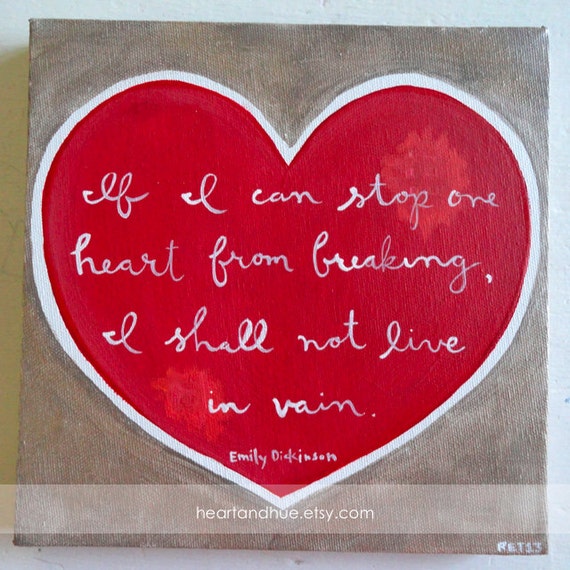 If I can stop one
heart from breaking,
I shall not live
in vain.
Emily Dickinson
heartandhue.etsy.com
RET13